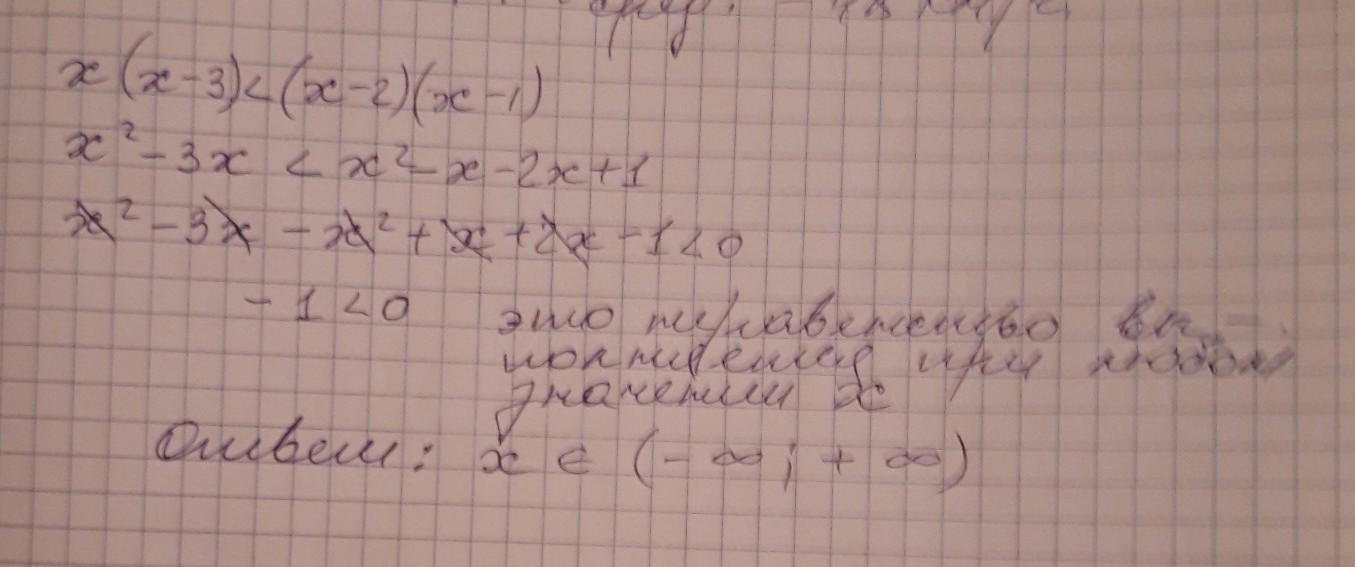 x(x-3)<(x-2)(x-1)
x² - 3x < x² - x - 2x + 1
x² - 3x - x² + x + 2x - 1 < 0
-1 < 0 это неравенство вы-
полняется при любом
значении x
Ответ: x ∈ (-∞; +∞)